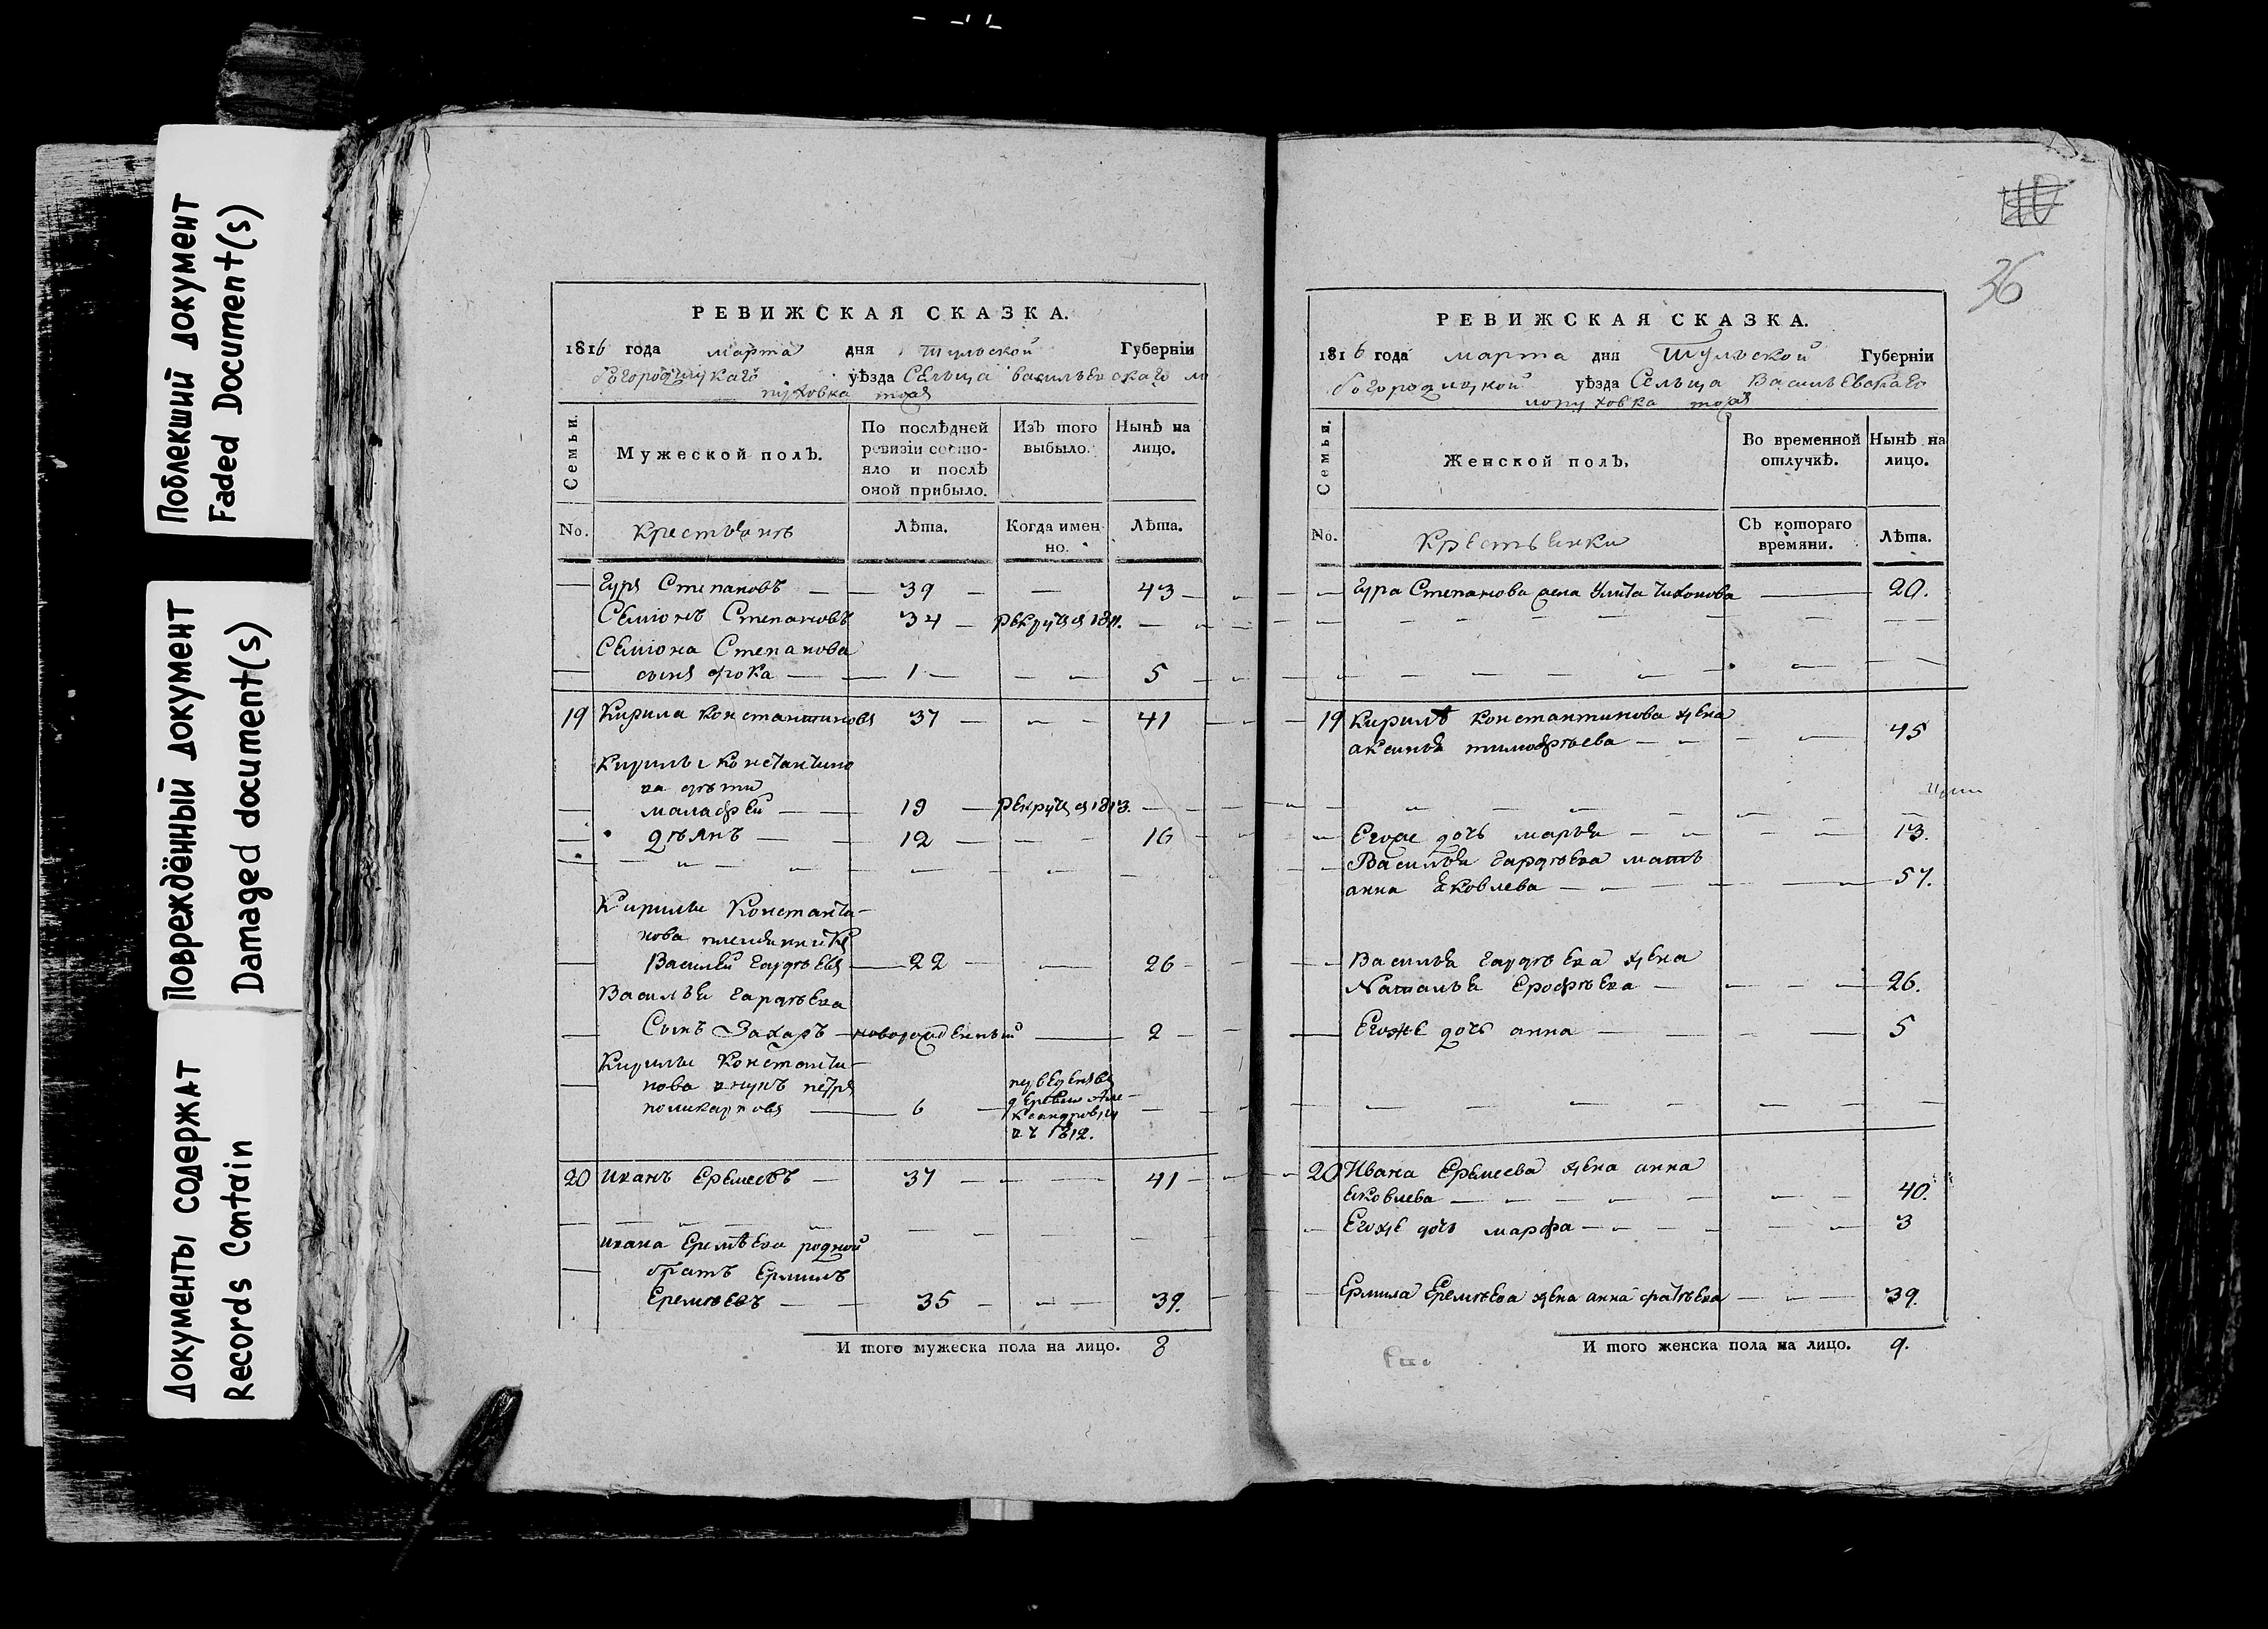 Поблекший документ
Faded Document(s)
Повреждённый документ
Damaged document(s)
Документы содержат
Records Contain
РЕВИЖСКАЯ СКАЗКА.
1816 года марта дня Тульской Губерніи
богородицкаго уѣзда Сельца васильевскаго ло
пуховка тожъ
Семьи.
Мужеской полъ.
По послѣдней ревизіи состояло и послѣ оной прибыло.
Изъ того выбыло.
Нынѣ на лицо.
No. Крестьянъ Лѣта. Когда именно. Лѣта.
Гуръ Степановъ 39 43
Семіонъ Степановъ 34 рекрутъ 1811.
Семіона Степанова
сынъ фока 1 5
19 Кирила Константиновъ 37 41
Кирилы Константино
ва дѣти
малафей 19 рекрутъ 1813.
дѣянъ 12 16
Кирилы Константи-
нова племянникъ
Василей Гардѣевъ 22 26
Василья гардѣева
Сынъ Захаръ новорожденный 2
Кирилы Константи-
нова внукъ петръ
поликарповъ 6
переведенъ въ
деревню Але-
ксандровку
въ 1812.
20 иванъ Еремеевъ 37 41
ивана Еремѣева родной
братъ Ермилъ
Еремѣевъ 35 39.
И того мужеска пола на лицо. 8
36
РЕВИЖСКАЯ СКАЗКА.
1816 года марта дня Тульской Губерніи
богородицкой уѣзда Сельца Васильевскаго
лопуховка тожъ
Семьи.
Женской полъ.
Во временной отлучкѣ.
Нынѣ на лицо.
No. Крестьянки Съ котораго времяни. Лѣта.
Гура Степанова жена Улита Тихонова 20.
19 Кирилѣ Константинова жена
аксинья тимофѣева 45
Егоже дочь марья 13.
Василья Гардѣева мать
анна Яковлева 57.
Василья гардѣева жена
Наталья Ерофѣева 26.
Егоже дочь анна 5
20 Ивана Еремеева жена анна
яковлева 40.
Егоже дочь марфа 3
Ермила Еремѣева жена анна фатѣева 39.
И того женска пола на лицо. 9.